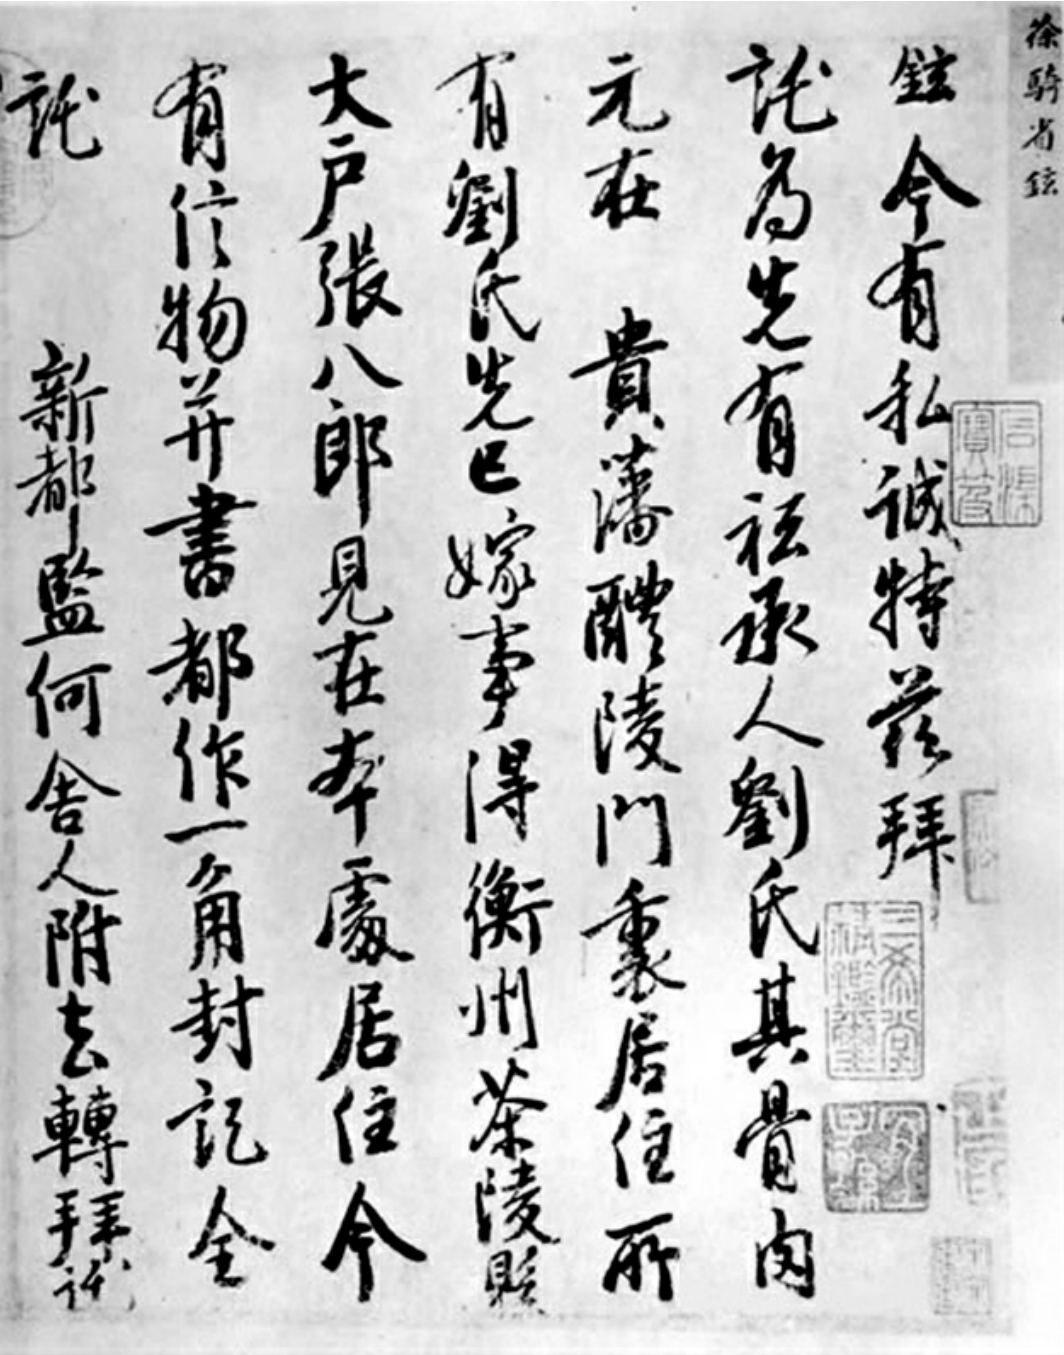 徐騎省鉉
鉉今有私誠特茲拜
託為先有祗承人劉氏其骨肉
元在 貴藩醴陵門裏居住所
有劉氏先已嫁事得衡州茶陵縣
大户張八郎見在本處居住今
有信物并書都作一角封記全
託 新都監何舍人附去轉拜託
三希堂精鑑璽
宜子孫